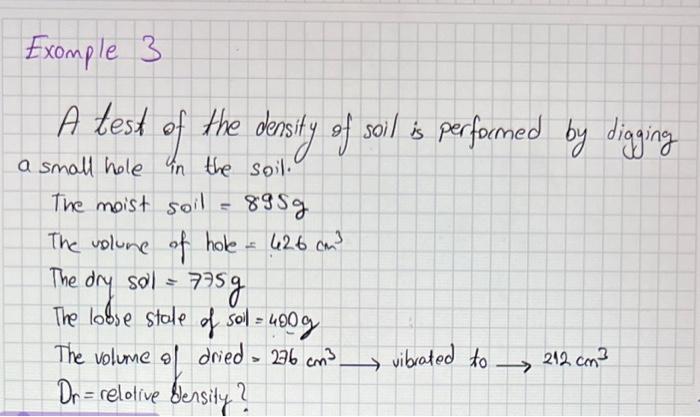 Example 3
A test of the density of soil is performed by digging
a small hole in the soil.
The moist soil = 895g
The volume of hole = 426 cm³
The dry soil = 775g
The loose state of soil = 400g
The volume of dried = 276 cm³ → vibrated to → 212 cm³
Dr = relative density?